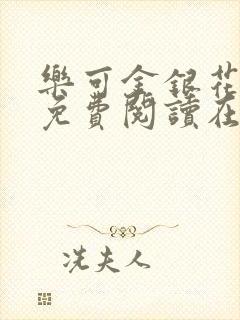 樂可金銀花
免費閱讀在
冼夫人